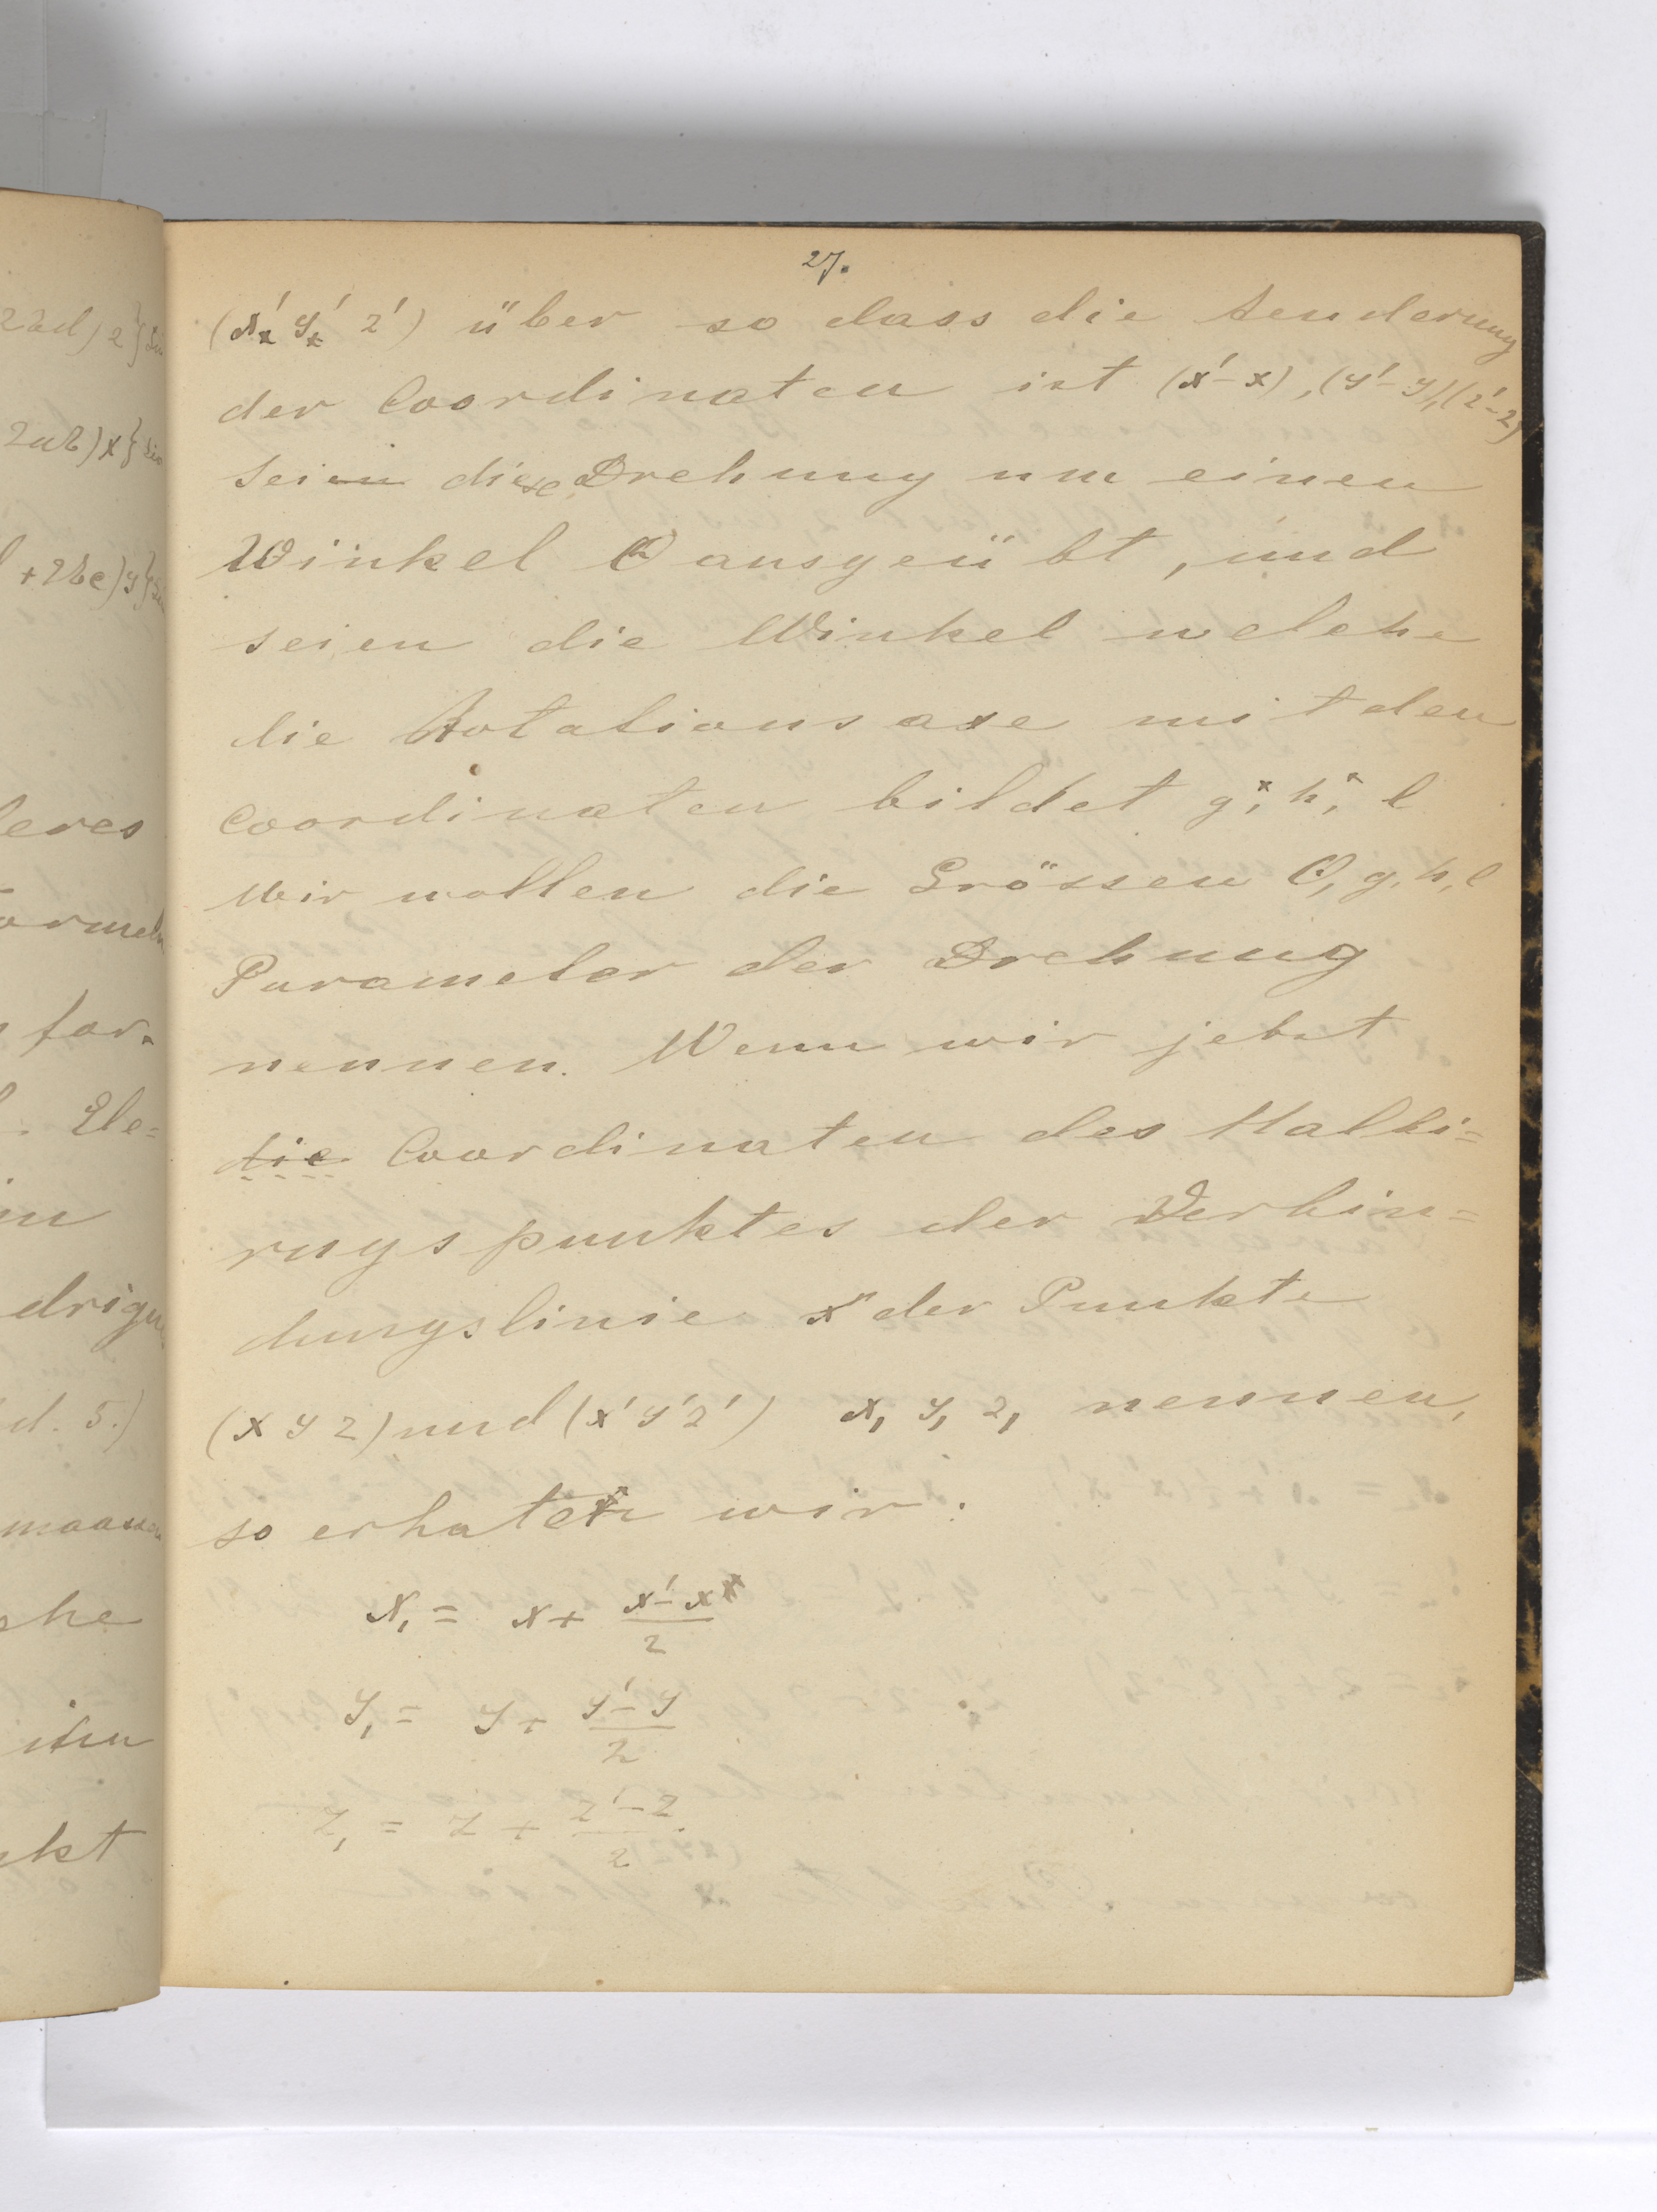 27.
(x' y' z') über so dass die Aenderung
der Coordinaten ist (x'-x), (y'-y), (z'-z)
Sei diese Drehung um einen
Winkel Θ ausgeübt, und
seien die Winkel welche
die Rotationsaxe mit den
Coordinaten bildet g, h, l
Wir wollen die Grössen Θ, g, h, l
Parameter der Drehung
nennen. Wenn wir jetzt
die Coordinaten des Halbi=
rugspunktes der Verbin=
dungslinie der Punkte
(x y z) und (x' y' z') x, y, z, nennen,
so erhaten wir:
x, = x + (x'-x)/2
y, = y + (y'-y)/2
z, = z + (z'-z)/2.
22d) z}
2ab) x} Sin
+2bc) y}
leres
ormeln
for.
Ele=
in
drigu
d. 5.)
maassen
che
itu
kt